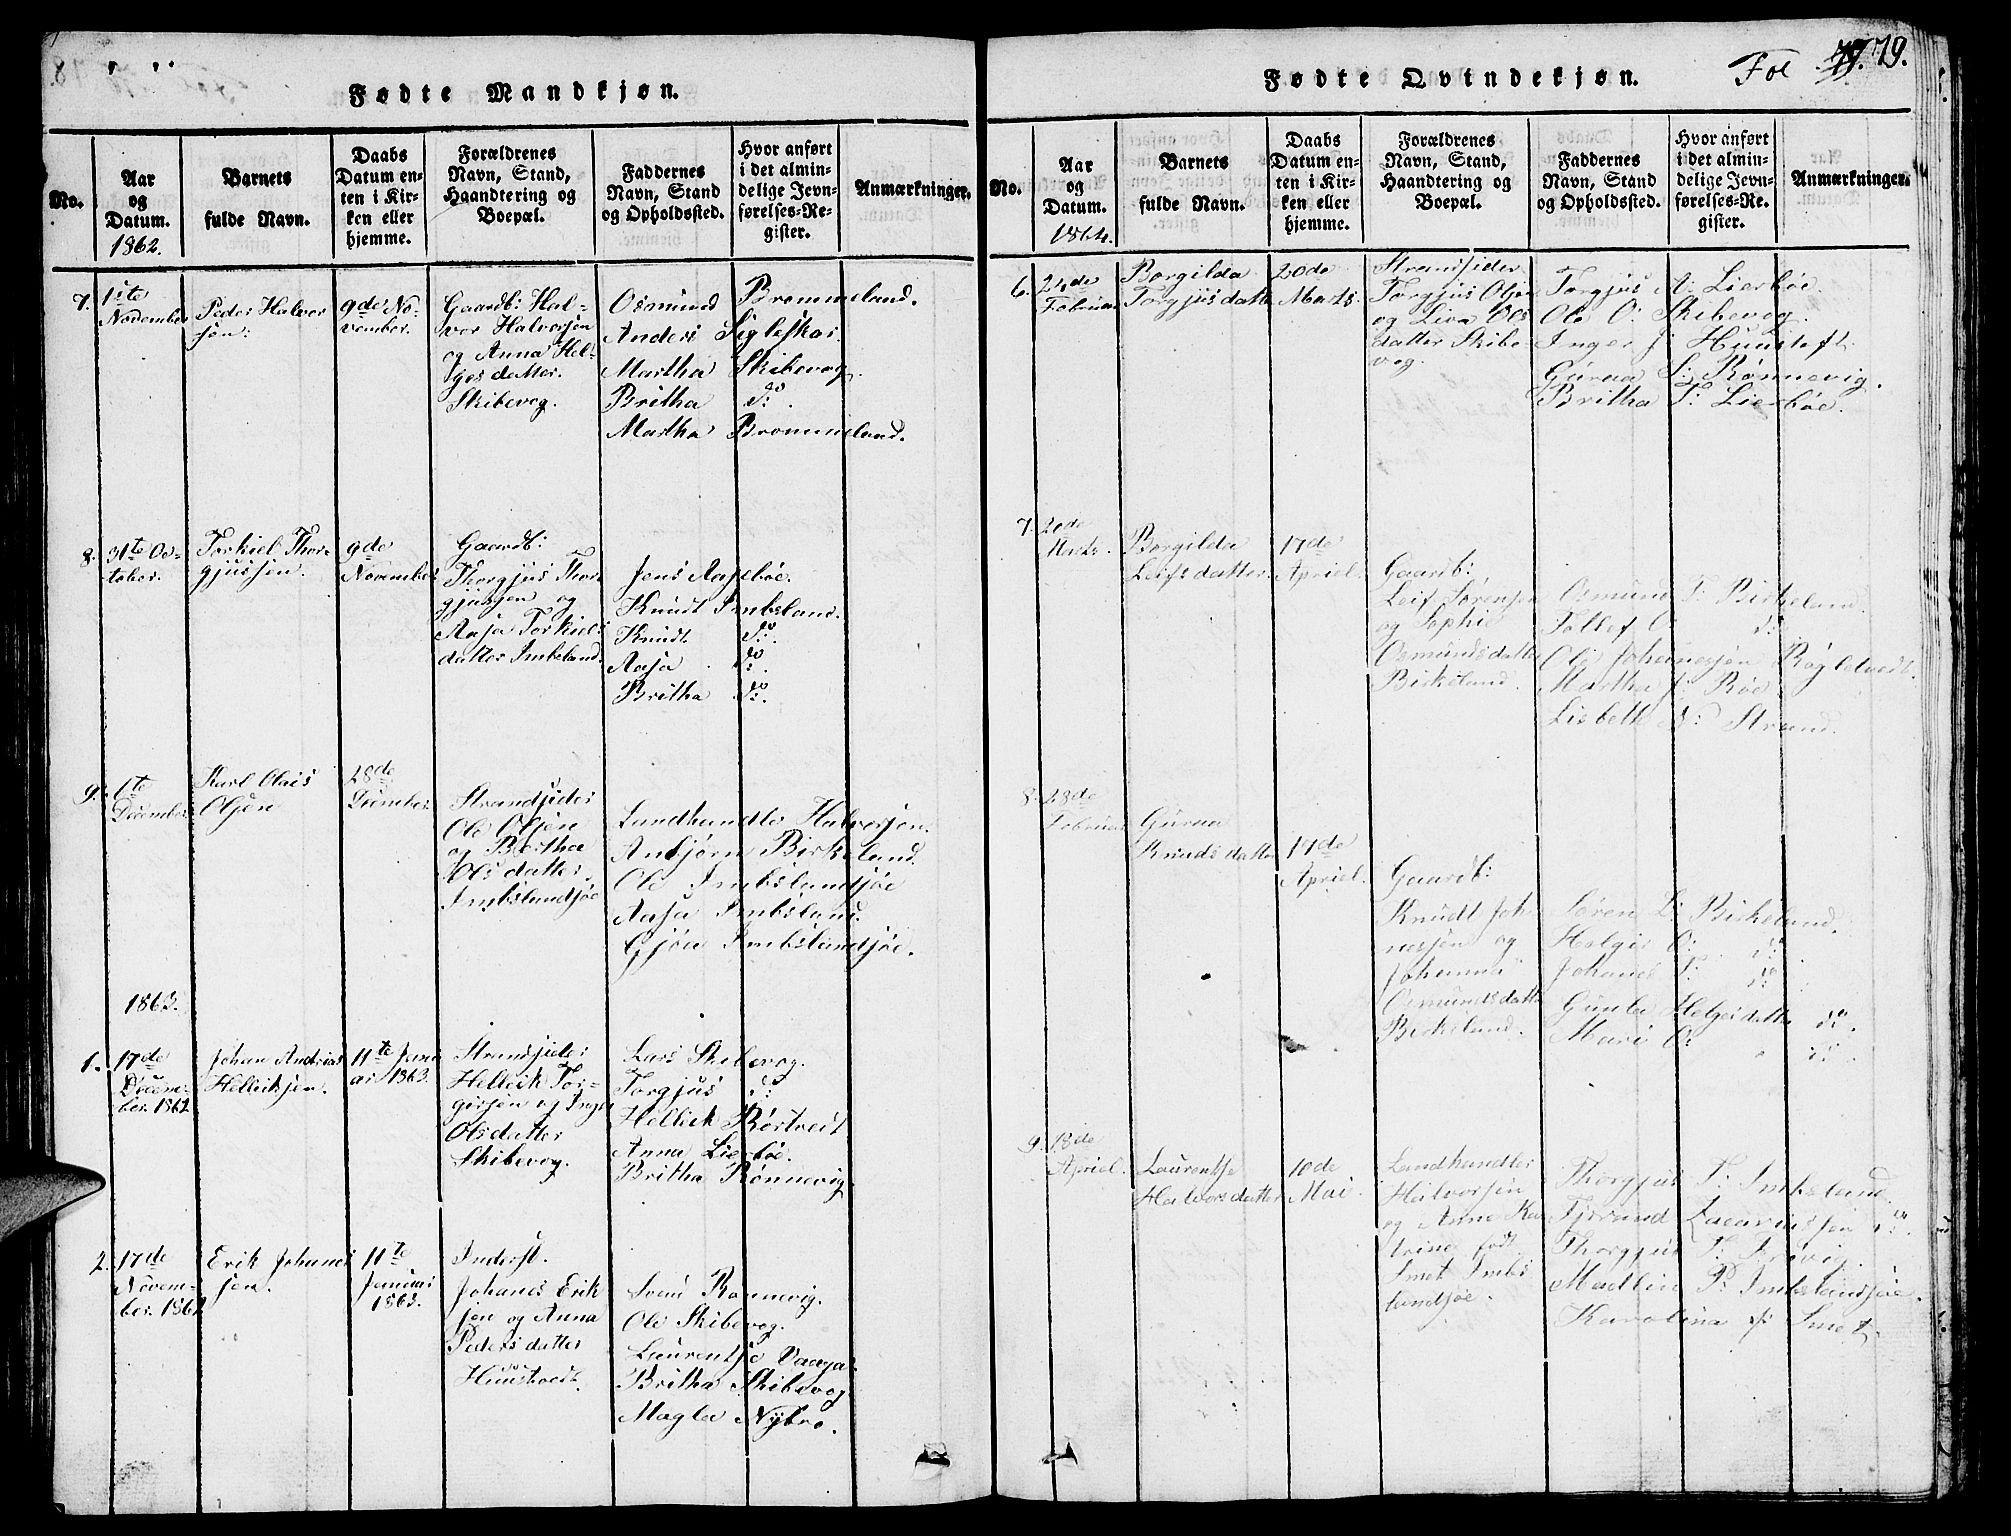 Fødte Mandkjøn.
No.
Aar
og
Datum.
1862.
Barnets
fulde Navn.
Daabs
Datum en-
ten i Kir-
ken eller
hjemme.
Forældrenes
Navn, Stand,
Haandtering og
Boepæl.
Faddernes
Navn, Stand
og Opholdssted.
Hvor anført
i det almin-
delige Jevn-
førelses-Re-
gister.
Anmærkninger.
7.
1ste
November
Peder Halvor
sen.
9de No-
vember.
Gaardb: Hal-
vor Halvorsen
og Anna Hel-
ges datter.
Skibevog.
Osmund Brommeland.
Anders Sigleskar.
Martha Skibevog.
Britha do.
Martha Brommeland.
8.
31te Oc-
tober.
Torkiel Thor-
gjussen.
9de
November
Gaardb:
Thorgjus Thor
gjussen og
Aasa Torkiels
datter Imbsland.
Jens Aasebøe.
Knudt Imbsland.
Knudt do.
Aasa do.
Britha do.
9.
1te
December
Karl Olais
Olsen
28de
December
Strandsider
Ole Olsen
og Bertha
Olsdatter.
Imbslandsøe
Landhandler Halvorsen.
Anbjørn Birkeland.
Ole Imbslandsøe
Aasa Imbsland.
Gjøa Imbslandsøe.
1863.
1.
17de
Decem-
ber. 1862
Johan Andrias
Helliksen.
11te Janu
ar 1863.
Strandsider
Hellik Tor-
gersen og Inger
Olsdatter
Skibevog.
Lars Skibevog.
Torgjus do
Hellik Børtveit
Anna Lierbøe.
Britha Rønnevig.
2.
17de
Novem-
ber. 1862
Erik Johanes
sen.
11te
Januar
1863.
Inderst.
Johanes Erik
sen og Anna
Peders datter
Huustvedt.
Svend Rønnevig.
Ole Skibevog.
Laurentse Vaaga
Britha Skibevog
Magla Nybro.
Fødte Qvindekjøn.
Fol 79.
No.
Aar
og
Datum.
1864.
Barnets
fulde Navn.
Daabs
Datum en-
ten i Kir-
ken eller
hjemme.
Forældrenes
Navn, Stand,
Haandtering og
Boepæl.
Faddernes
Navn, Stand
og Opholdssted.
Hvor anført
i det almin-
delige Jevn-
førelses-Re-
gister.
Anmærkninger.
6.
24de
Februar
Borgilda
Torgjusdatter
20de
Marts.
Strandsider
Torgjus Olsen
og Liva Ols
datter Skibe
vog.
Torgjus A: Lierbøe.
Ole O: Skibevig.
Inger J:
Guraa S: Rønnevig.
Britha T: Lierbøe.
7.
20de
Marts.
Borgilda
Leifsdatter.
17de
Apriel.
Gaardb:
Leif Sørensen
og Sophie
Osmundsdatter
Birkeland.
Osmund T: Birkeland.
Tollef O: do
Ole Johanessen Røgletvedt.
Martha J: Røe
Lisbeth N: Strand.
8.
28de
Februar
Guraa
Knudsdatter
17de
Apriel.
Gaardb:
Knudt Joha
nesjen og
Johanna
Osmundsdatter
Birkeland.
Søren L: Birkeland.
Helge O: do.
Johanes T: do
Gunla Helgesdatter do.
Mari O: do.
9.
18de
Apriel.
Laurentse
Halvorsdatter
10de
Mai.
Landhandler
Halvorsen
og Anne Ka
trine født
Smet Imbs
landsøe.
Thorgjus T: Imbsland.
Tjerand Zacariassen do.
Thorgjus T: Brøvig.
Madlin P: Imbslandsøe.
Karolina J: Smet.